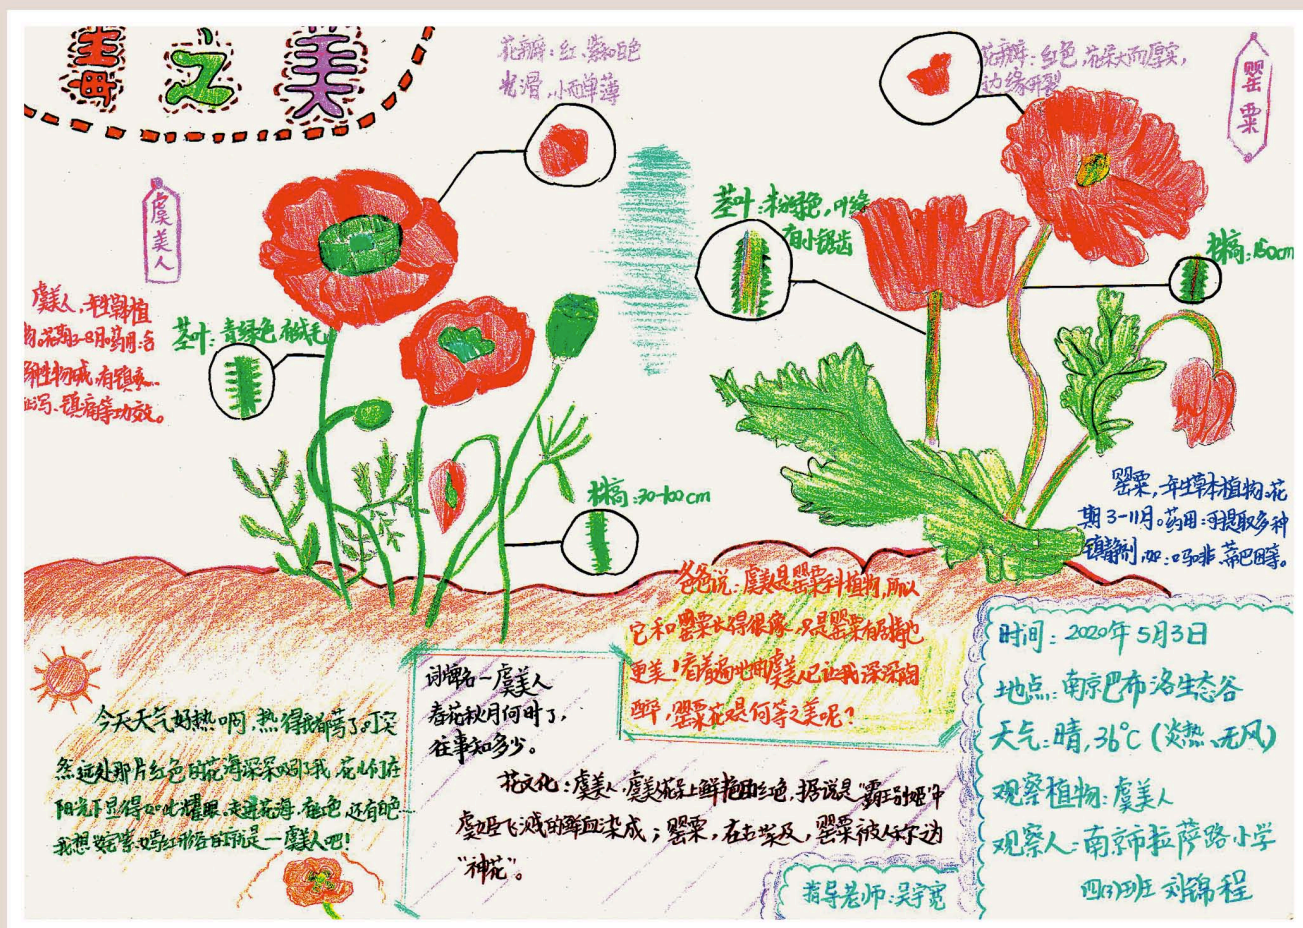 毒之美
花瓣:红、紫和白色
光滑,小而单薄
花瓣:红色,花朵大而厚实,
边缘开裂
罂粟
虞美人
茎叶:粉绿色,叶缘
有小锯齿
株高:150cm
虞美人,一年生草本植
物。花期3-8月。药用:含
多种生物碱,有镇咳、
止泻、镇痛等功效。
茎叶:青绿色有绒毛
株高:30-100cm
罂粟,一年生草本植物。花
期3-11月。药用:可提取多种
镇静剂,如:吗啡、蒂巴因等。
爸爸说:虞美人是罂粟科植物,所以
它和罂粟长得很像,只是罂粟有剧毒也
更美!看着遍地的虞美人已让我深深陶
醉,罂粟花又是何等之美呢?
今天天气好热啊,热得我都蔫了。可突
然远处那片红色的花海深深吸引了我,花儿们在
阳光下显得如此耀眼,走进花海,有红色,还有白色…
我想姹紫嫣红形容的就是—虞美人吧!
词牌名—虞美人
春花秋月何时了,
往事知多少。
花文化:虞美人,虞美人花朵上鲜艳的红色,据说是"霸王别姬"中
虞姬飞溅的鲜血染成;罂粟,在古埃及,罂粟被人称为
"神花"。
时间:2020年5月3日
地点:南京巴布洛生态谷
天气:晴,36℃(炎热、无风)
观察植物:虞美人
观察人:南京市拉萨路小学
四(3)班 刘锦程
指导老师:吴宇宽